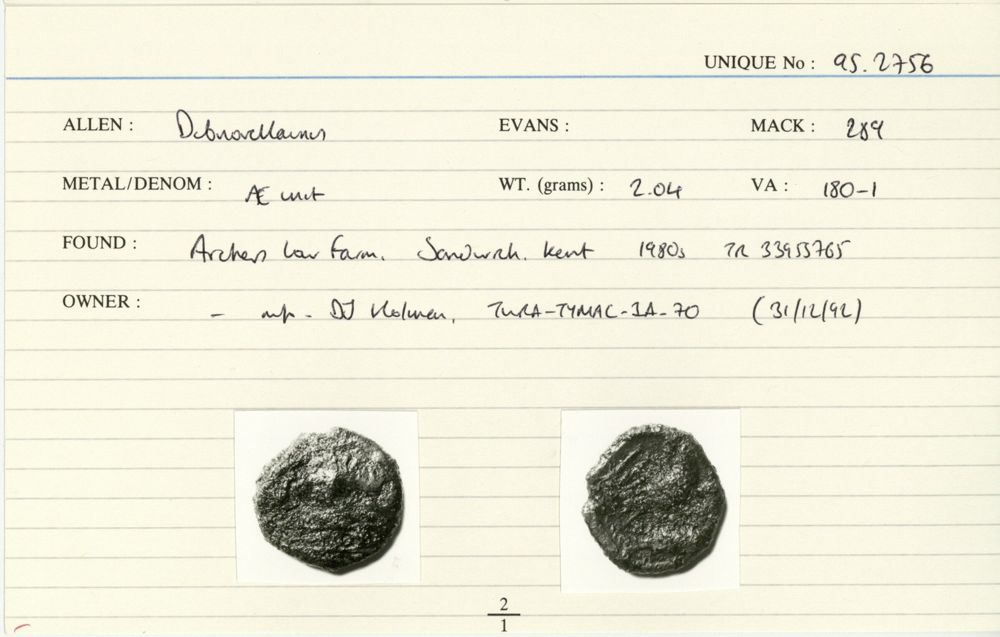 UNIQUE No : 95.2756
ALLEN : Dubnovellaunus EVANS : MACK : 289
METAL/DENOM : Æ unit WT. (grams) : 2.04 VA : 180-1
FOUND : Archers Low Farm, Sandwich, Kent 1980s TR 33955765
OWNER : - DJ Holman, (31/12/92)
2
1